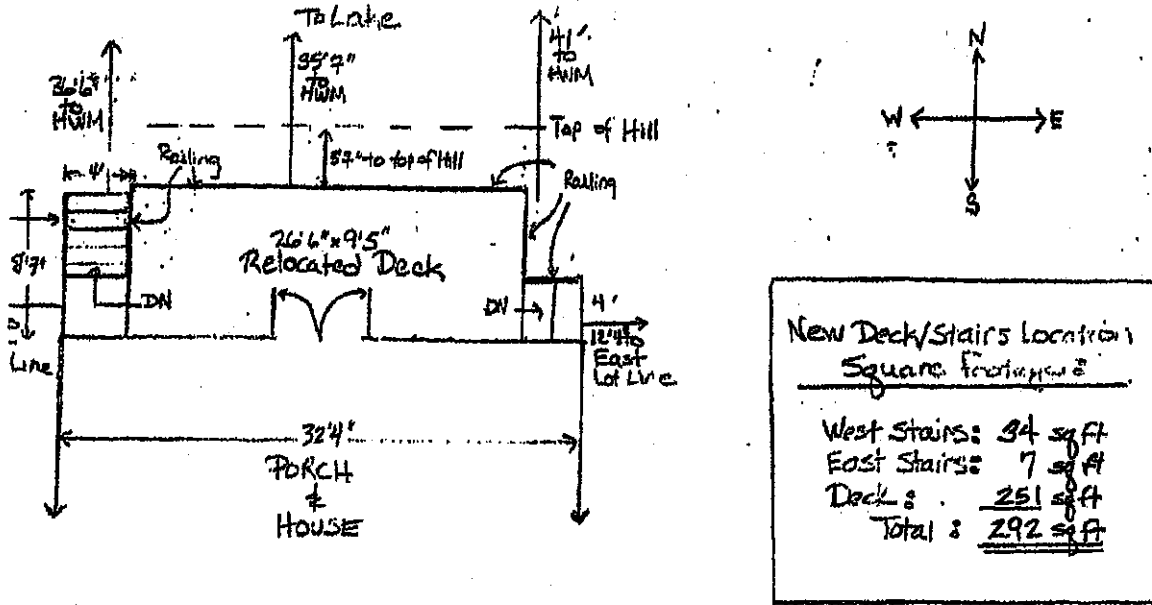 To Lake
36'6"
to
HWM
35'7"
to
HWM
41'
to
HWM
Top of Hill
to top of Hill
4'
Railing
Railing
26'6" x 9'5"
Relocated Deck
DN
DN
4'
to
East
Lot Line
Line
32'4"
PORCH
&
HOUSE
N
W
E
S
New Deck/Stairs Location
Square
West Stairs: 34 sq ft
East Stairs: 7 sq ft
Deck: 251 sq ft
Total: 292 sq ft